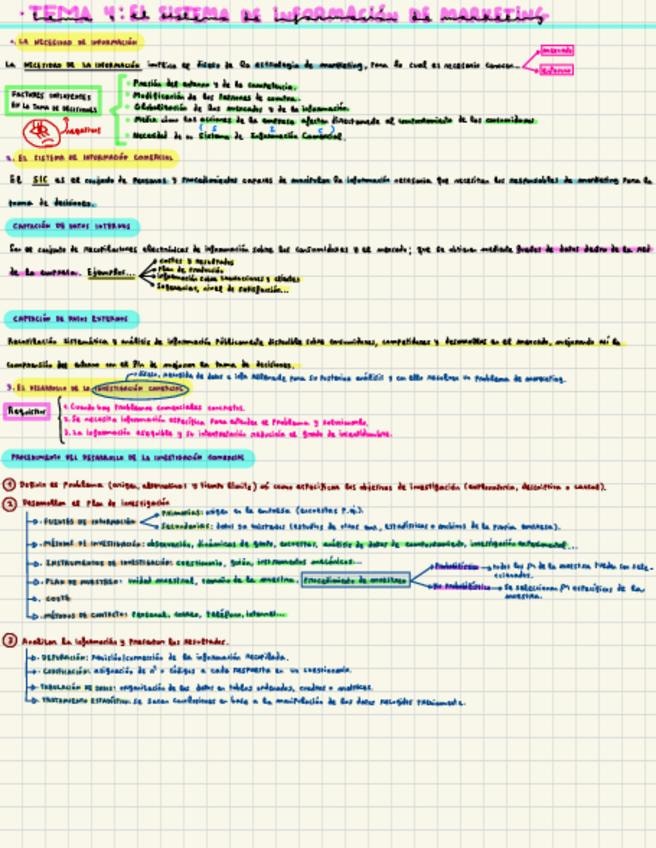 · TEMA 4: EL SISTEMA DE INFORMACIÓN DE MARKETING
1. LA NECESIDAD DE INFORMACIÓN
La NECESIDAD DE LA INFORMACIÓN implica el diseño de la estrategia de marketing, para lo cual es necesario conocer...
mercado
entorno
FACTORES INFLUYENTES EN LA TOMA DE DECISIONES
negativos
· Presión del entorno y de la competencia.
· Modificación de los patrones de compra.
· Globalización de los mercados y de la información.
· Medir cómo las acciones de la empresa afectan directamente al comportamiento de los consumidores.
· Necesidad de un Sistema de Información Comercial.
2. EL SISTEMA DE INFORMACIÓN COMERCIAL
El SIC es el conjunto de personas y procedimientos capaces de manipular la información necesaria que necesitan los responsables de marketing para la
toma de decisiones.
CAPTACIÓN DE DATOS INTERNOS
Son el conjunto de recopilaciones electrónicas de información sobre los consumidores y el mercado; que se obtiene mediante fuentes de datos dentro de la red
de la empresa. Ejemplos...
costes y resultados
Plan de producción
información sobre transacciones y clientes
Sugerencias, nivel de satisfacción...
CAPTACIÓN DE DATOS EXTERNOS
Recopilación sistemática y análisis de información públicamente disponible sobre consumidores, competidores y desarrollos en el mercado, mejorando así la
comprensión del entorno con el fin de mejorar la toma de decisiones.
3. EL DESARROLLO DE LA INVESTIGACIÓN COMERCIAL
recogida de datos e info para su posterior análisis y con ello resolver un problema de marketing.
Requisitos
1. Cuando hay problemas comerciales concretos.
2. Se necesita información específica para entender el problema y solucionarlo.
3. La información asequible y su interpretación reducirán el grado de incertidumbre.
PROCEDIMIENTO DEL DESARROLLO DE LA INVESTIGACIÓN COMERCIAL
1 Definir el Problema (origen, alternativas y tiempo límite) así como especificar los objetivos de investigación (exploratoria, descriptiva o causal).
2 Desarrollar el Plan de investigación
FUENTES DE INFORMACIÓN
Primarias: origen en la empresa (encuestas p.ej.).
Secundarias: datos ya existentes (estudios de otras emp, estadísticas o archivos de la propia empresa).
MÉTODOS DE INVESTIGACIÓN: observación, dinámicas de grupo, encuestas, análisis de datos de comportamiento, investigación experimental...
INSTRUMENTOS DE INVESTIGACIÓN: cuestionario, guión, instrumentos mecánicos...
PLAN DE MUESTREO: unidad muestral, tamaño de la muestra. Procedimiento de muestreo
Probabilístico → todos los de la muestra pueden ser sele-
cionados.
No probabilístico → Se seleccionan específicos de la
muestra.
COSTE
MÉTODOS DE CONTACTO: Personal, correo, teléfono, internet...
3 Analizar la información y presentar los resultados.
DEPURACIÓN: revisión/corrección de la información recopilada.
CODIFICACIÓN: asignación de nº o códigos a cada respuesta en un cuestionario.
TABULACIÓN DE DATOS: organización de los datos en tablas ordenadas, cuadros o matrices.
TRATAMIENTO ESTADÍSTICO: se sacan conclusiones en base a la manipulación de los datos recogidos previamente.